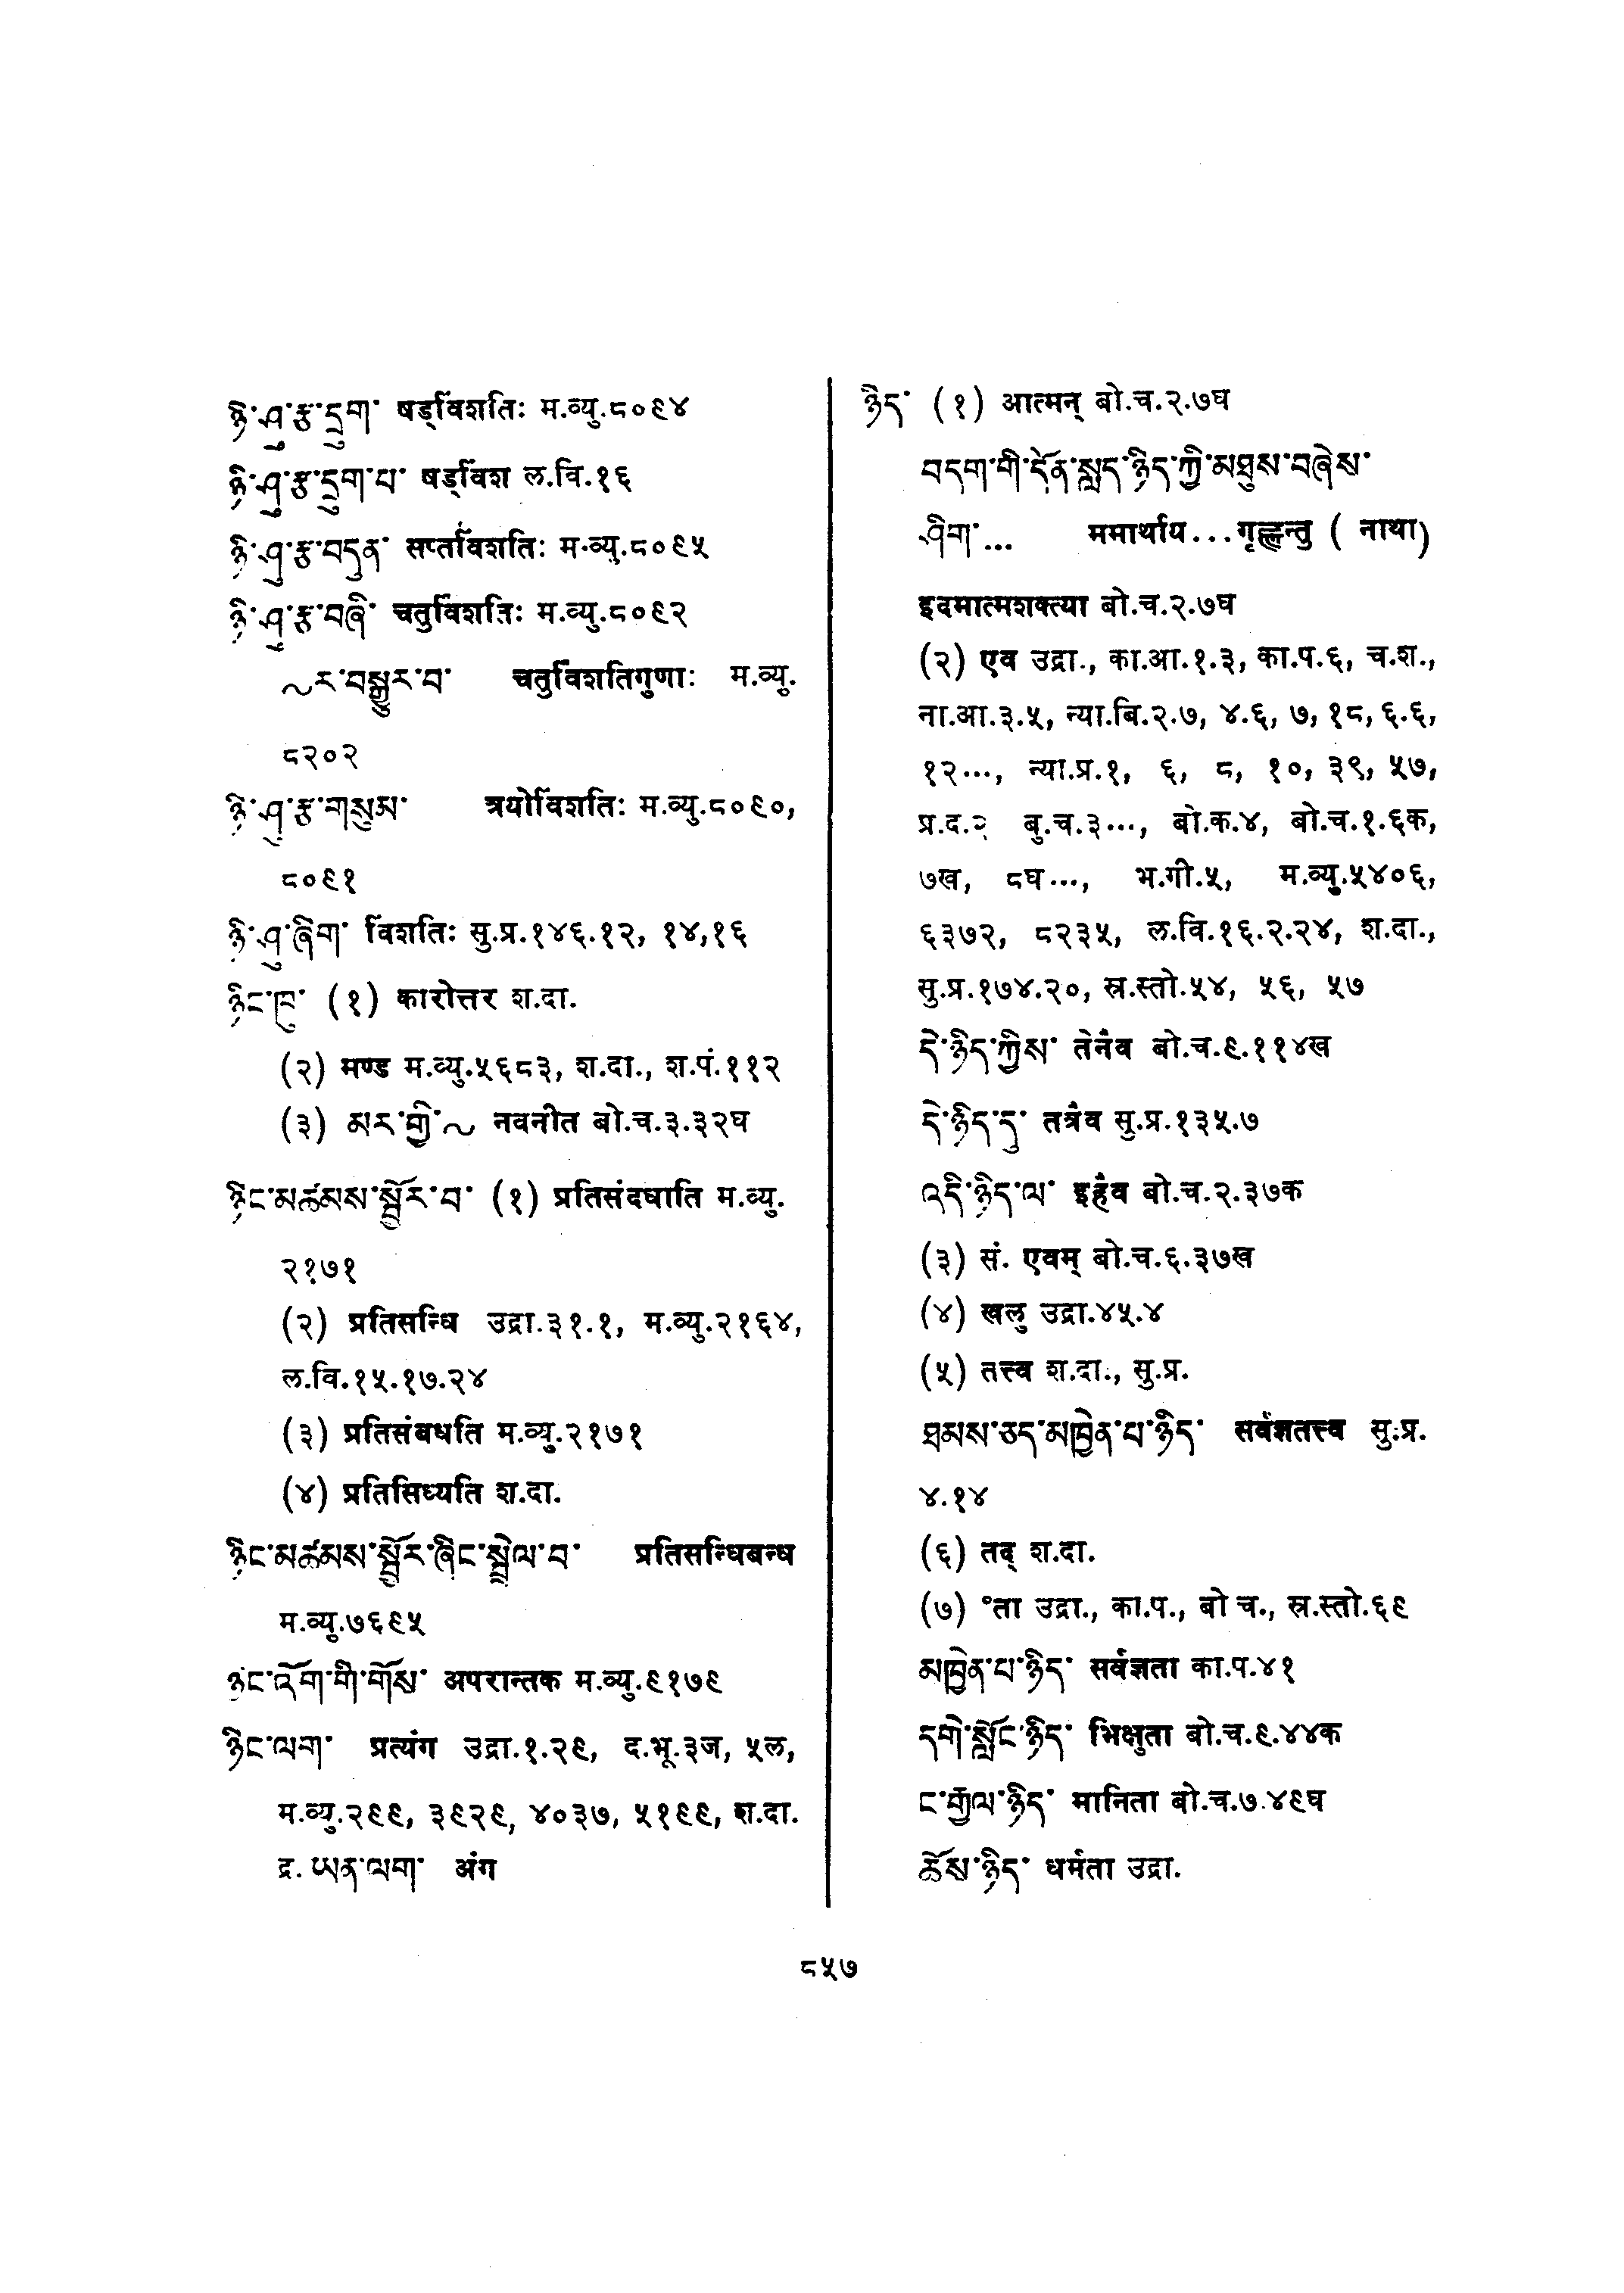 ཉི་ཤུ་རྩ་དྲུག་ षड्विंशतिः म.व्यु.८०९४
ཉི་ཤུ་རྩ་དྲུག་པ་ षड्विंश ल.वि.१६
ཉི་ཤུ་རྩ་བདུན་ सप्तविंशतिः म.व्यु.८०९५
ཉི་ཤུ་རྩ་བཞི་ चतुर्विंशतिः म.व्यु.८०९२
~ར་བསྒྱུར་བ་ चतुर्विंशतिगुणाः म.व्यु.
८२०२
ཉི་ཤུ་རྩ་གསུམ་ त्रयोविंशतिः म.व्यु.८०९०,
८०९१
ཉི་ཤུ་ཞིག་ विंशतिः सु.प्र.१४६.१२, १४,१६
ཉིང་ཁུ་ (१) कारोत्तर श.दा.
(२) मण्ड म.व्यु.५६८३, श.दा., श.पं.११२
(३) མར་གྱི་~ नवनीत बो.च.३.३२घ
ཉིང་མཚམས་སྦྱོར་བ་ (१) प्रतिसंदधाति म.व्यु.
२१७१
(२) प्रतिसन्धि उद्रा.३१.१, म.व्यु.२१६४,
ल.वि.१५.१७.२४
(३) प्रतिसंबधति म.व्यु.२१७१
(४) प्रतिसिध्यति श.दा.
ཉིང་མཚམས་སྦྱོར་ཞིང་སྦྲེལ་བ་ प्रतिसन्धिबन्ध
म.व्यु.७६९५
ཉིང་འོག་གི་གོས་ अपरान्तक म.व्यु.९१७९
ཉིང་ལག་ प्रत्यंग उद्रा.१.२९, द.भू.३ज, ५ल,
म.व्यु.२९९, ३९२९, ४०३७, ५१९९, श.दा.
द्र. ཡན་ལག་ अंग
ཉིད་ (१) आत्मन् बो.च.२.७घ
བདག་གི་དོན་སླད་ཉིད་ཀྱི་མཐུས་བཞེས་
ཤིག་... ममार्थाय...गृह्णन्तु ( नाथा)
इदमात्मशक्त्या बो.च.२.७घ
(२) एव उद्रा., का.आ.१.३, का.प.६, च.श.,
ना.आ.३.५, न्या.बि.२.७, ४.६, ७, १८, ६.६,
१२..., न्या.प्र.१, ६, ८, १०, ३९, ५७,
प्र.द.२ बु.च.३..., बो.क.४, बो.च.१.६क,
७ख, ८घ..., भ.गी.५, म.व्यु.५४०६,
६३७२, ८२३५, ल.वि.१६.२.२४, श.दा.,
सु.प्र.१७४.२०, स्र.स्तो.५४, ५६, ५७
དེ་ཉིད་ཀྱིས་ तेनैव बो.च.९.११४ख
དེ་ཉིད་དུ་ तत्रैव सु.प्र.१३५.७
འདི་ཉིད་ལ་ इहैव बो.च.२.३७क
(३) सं. एवम् बो.च.६.३७ख
(४) खलु उद्रा.४५.४
(५) तत्त्व श.दा., सु.प्र.
ཐམས་ཅད་མཁྱེན་པ་ཉིད་ सर्वज्ञतत्त्व सु.प्र.
४.१४
(६) तद् श.दा.
(७) °ता उद्रा., का.प., बो च., स्र.स्तो.६९
མཁྱེན་པ་ཉིད་ सर्वज्ञता का.प.४१
དགེ་སློང་ཉིད་ भिक्षुता बो.च.९.४४क
ང་རྒྱལ་ཉིད་ मानिता बो.च.७.४९घ
ཆོས་ཉིད་ धर्मता उद्रा.
८५७